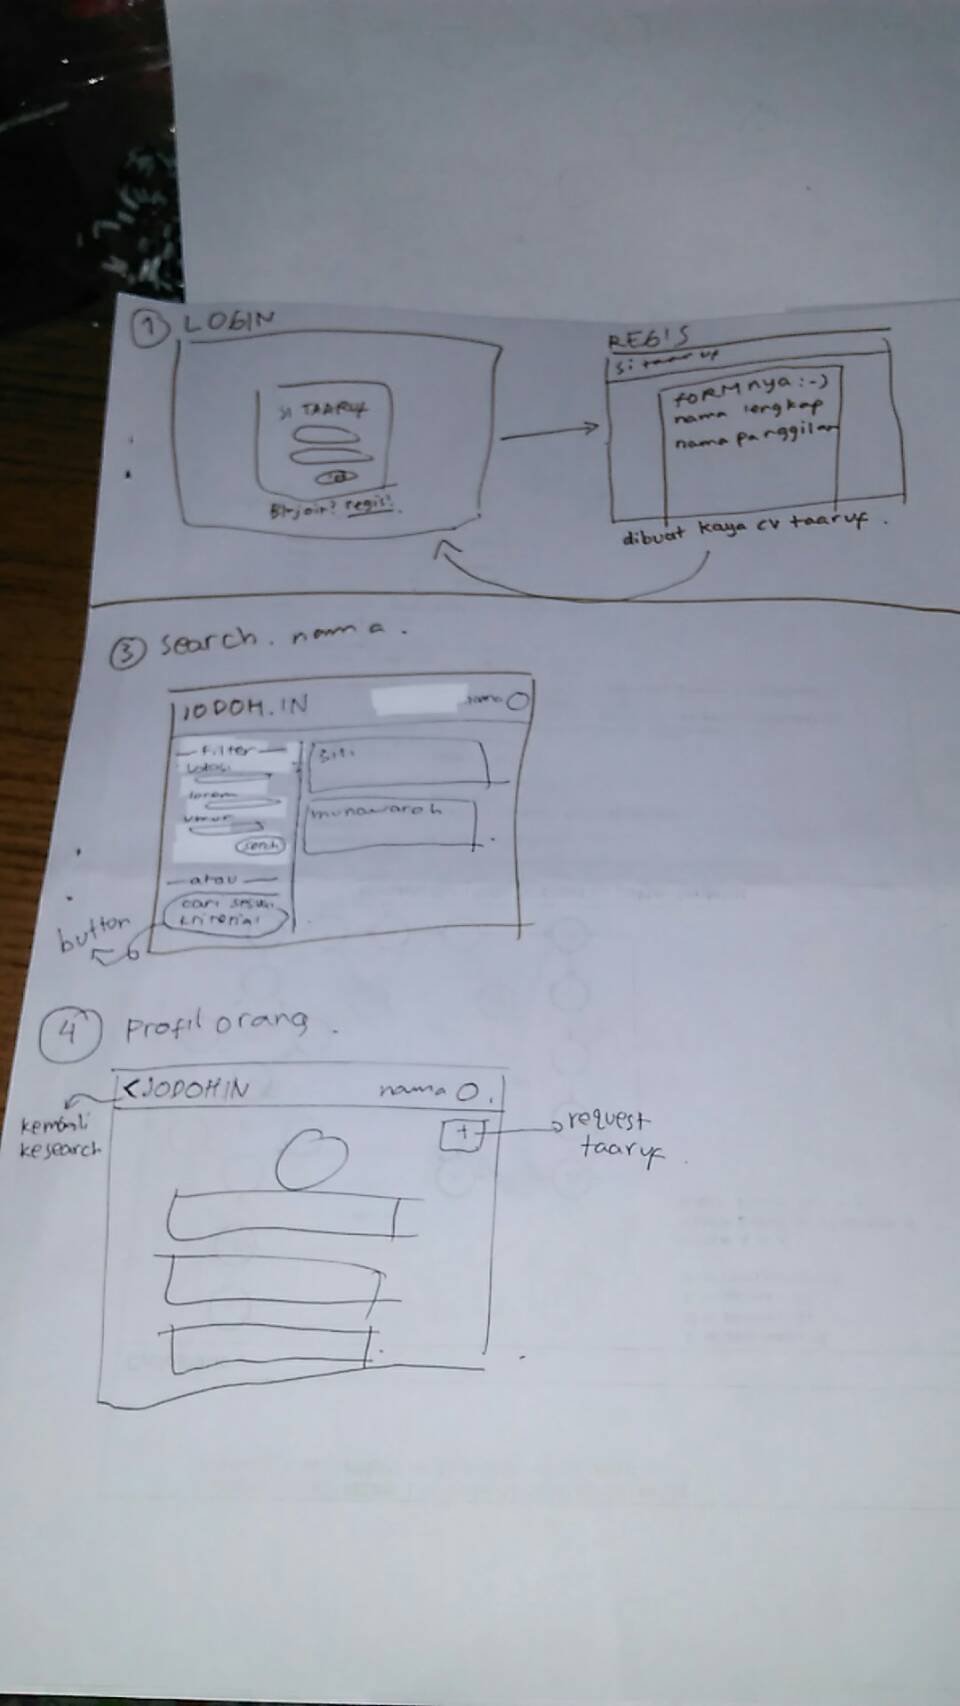 1 LOGIN
SI TAARUF
regis!
REGIS
si taaruf
FORMnya :-)
nama lengkap
nama panggilan
dibuat kaya cv taaruf.
3 search. nama.
JODOH.IN
nama
Filter
Lokasi
umur
search
atau
cari sesuai
kriteria!
siti
munawaroh
button
4 Profil orang.
<JODOHIN
nama
kembali
ke search
+
request
taaruf.